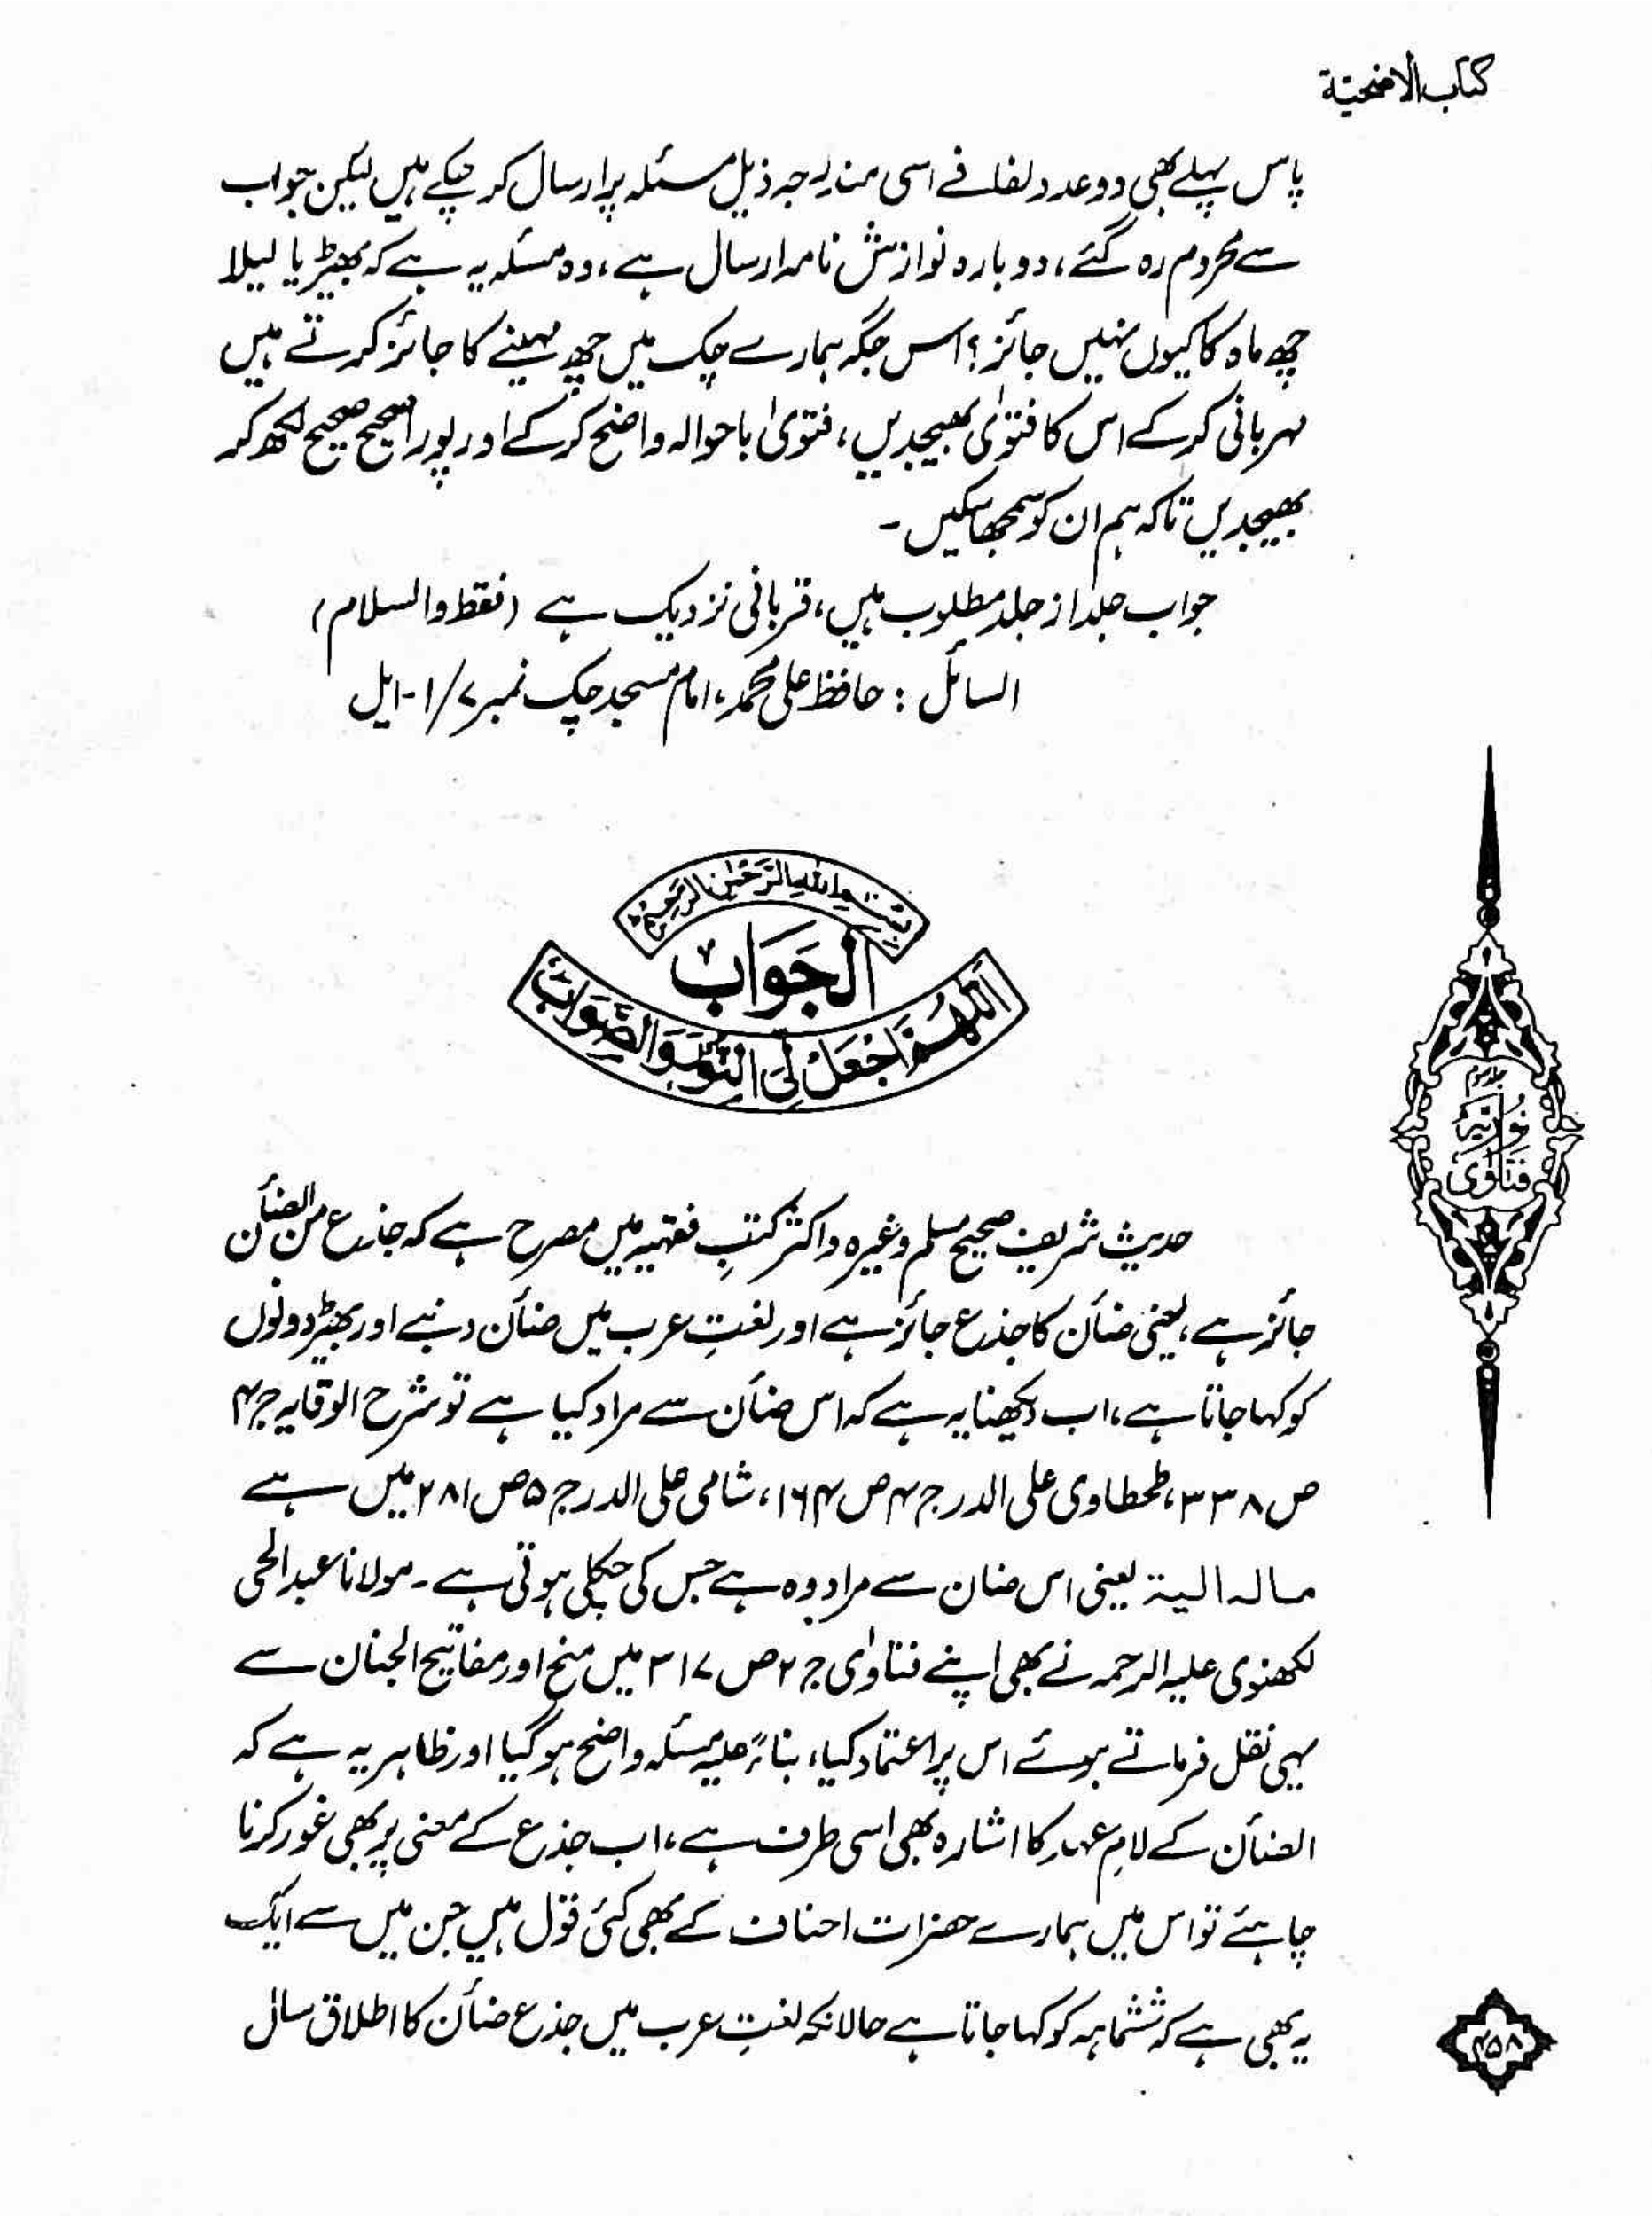 كتاب الاضحية
پاس پہلے بھی دو عدد لفافے اسی مندرجہ ذیل مسئلہ پر ارسال کر چکے ہیں لیکن جواب
سے محروم رہ گئے، دوبارہ نوازش نامہ ارسال ہے، وہ مسئلہ یہ ہے کہ بھیڑ یا لیلا
چھ ماہ کا کیوں نہیں جائز؟ اس جگہ ہمارے چک میں چھ مہینے کا جائز کرتے ہیں
مہربانی کرکے اس کا فتوٰی بھیجدیں، فتویٰ باحوالہ واضح کرکے اور پورا صحیح صحیح لکھ کر
بھیجدیں تاکہ ہم ان کو سمجھا سکیں۔
جواب جلد از جلد مطلوب ہیں، قربانی نزدیک ہے (فقط والسلام)
السائل : حافظ علی محمد، امام مسجد چک نمبر ۷/۱-ایل
بِسْمِ اللهِ الرَّحْمٰنِ الرَّحِيْمِ
اَلْجَوَابُ
اَللّٰهُمَّ اجْعَلْ لِيَ النُّوْرَ وَالصَّوَابَ
جلد سوم
فتاوٰی نوریہ
حدیث شریف صحیح مسلم وغیرہ و اکثر کتبِ فقہیہ میں مصرح ہے کہ جذع من الضأن
جائز ہے، یعنی ضأن کا جذع جائز ہے اور لغتِ عرب میں ضأن دنبے اور بھیڑ دونوں
کو کہا جاتا ہے، اب دیکھنا یہ ہے کہ اس ضأن سے مراد کیا ہے تو شرح الوقایہ ج ۴
ص ۳۳۸، طحطاوی علی الدر ج ۴ ص ۱۶۴، شامی علی الدر ج ۵ ص ۲۸۱ میں ہے
ما لہ الیة یعنی اس ضان سے مراد وہ ہے جس کی چکلی ہوتی ہے۔ مولانا عبدالحی
لکھنوی علیہ الرحمہ نے بھی اپنے فتاوٰی ج ۲ ص ۳۱۷ میں منح اور مفاتیح الجنان سے
یہی نقل فرماتے ہوئے اس پر اعتماد کیا، بناءً علیہ مسئلہ واضح ہو گیا اور ظاہر یہ ہے کہ
الضأن کے لامِ عہد کا اشارہ بھی اسی طرف ہے، اب جذع کے معنی پر بھی غور کرنا
چاہئے تو اس میں ہمارے حضرات احناف کے بھی کئی قول ہیں جن میں سے ایک
یہ بھی ہے کہ ششماہہ کو کہا جاتا ہے حالانکہ لغتِ عرب میں جذع ضأن کا اطلاق سال
۴۵۸